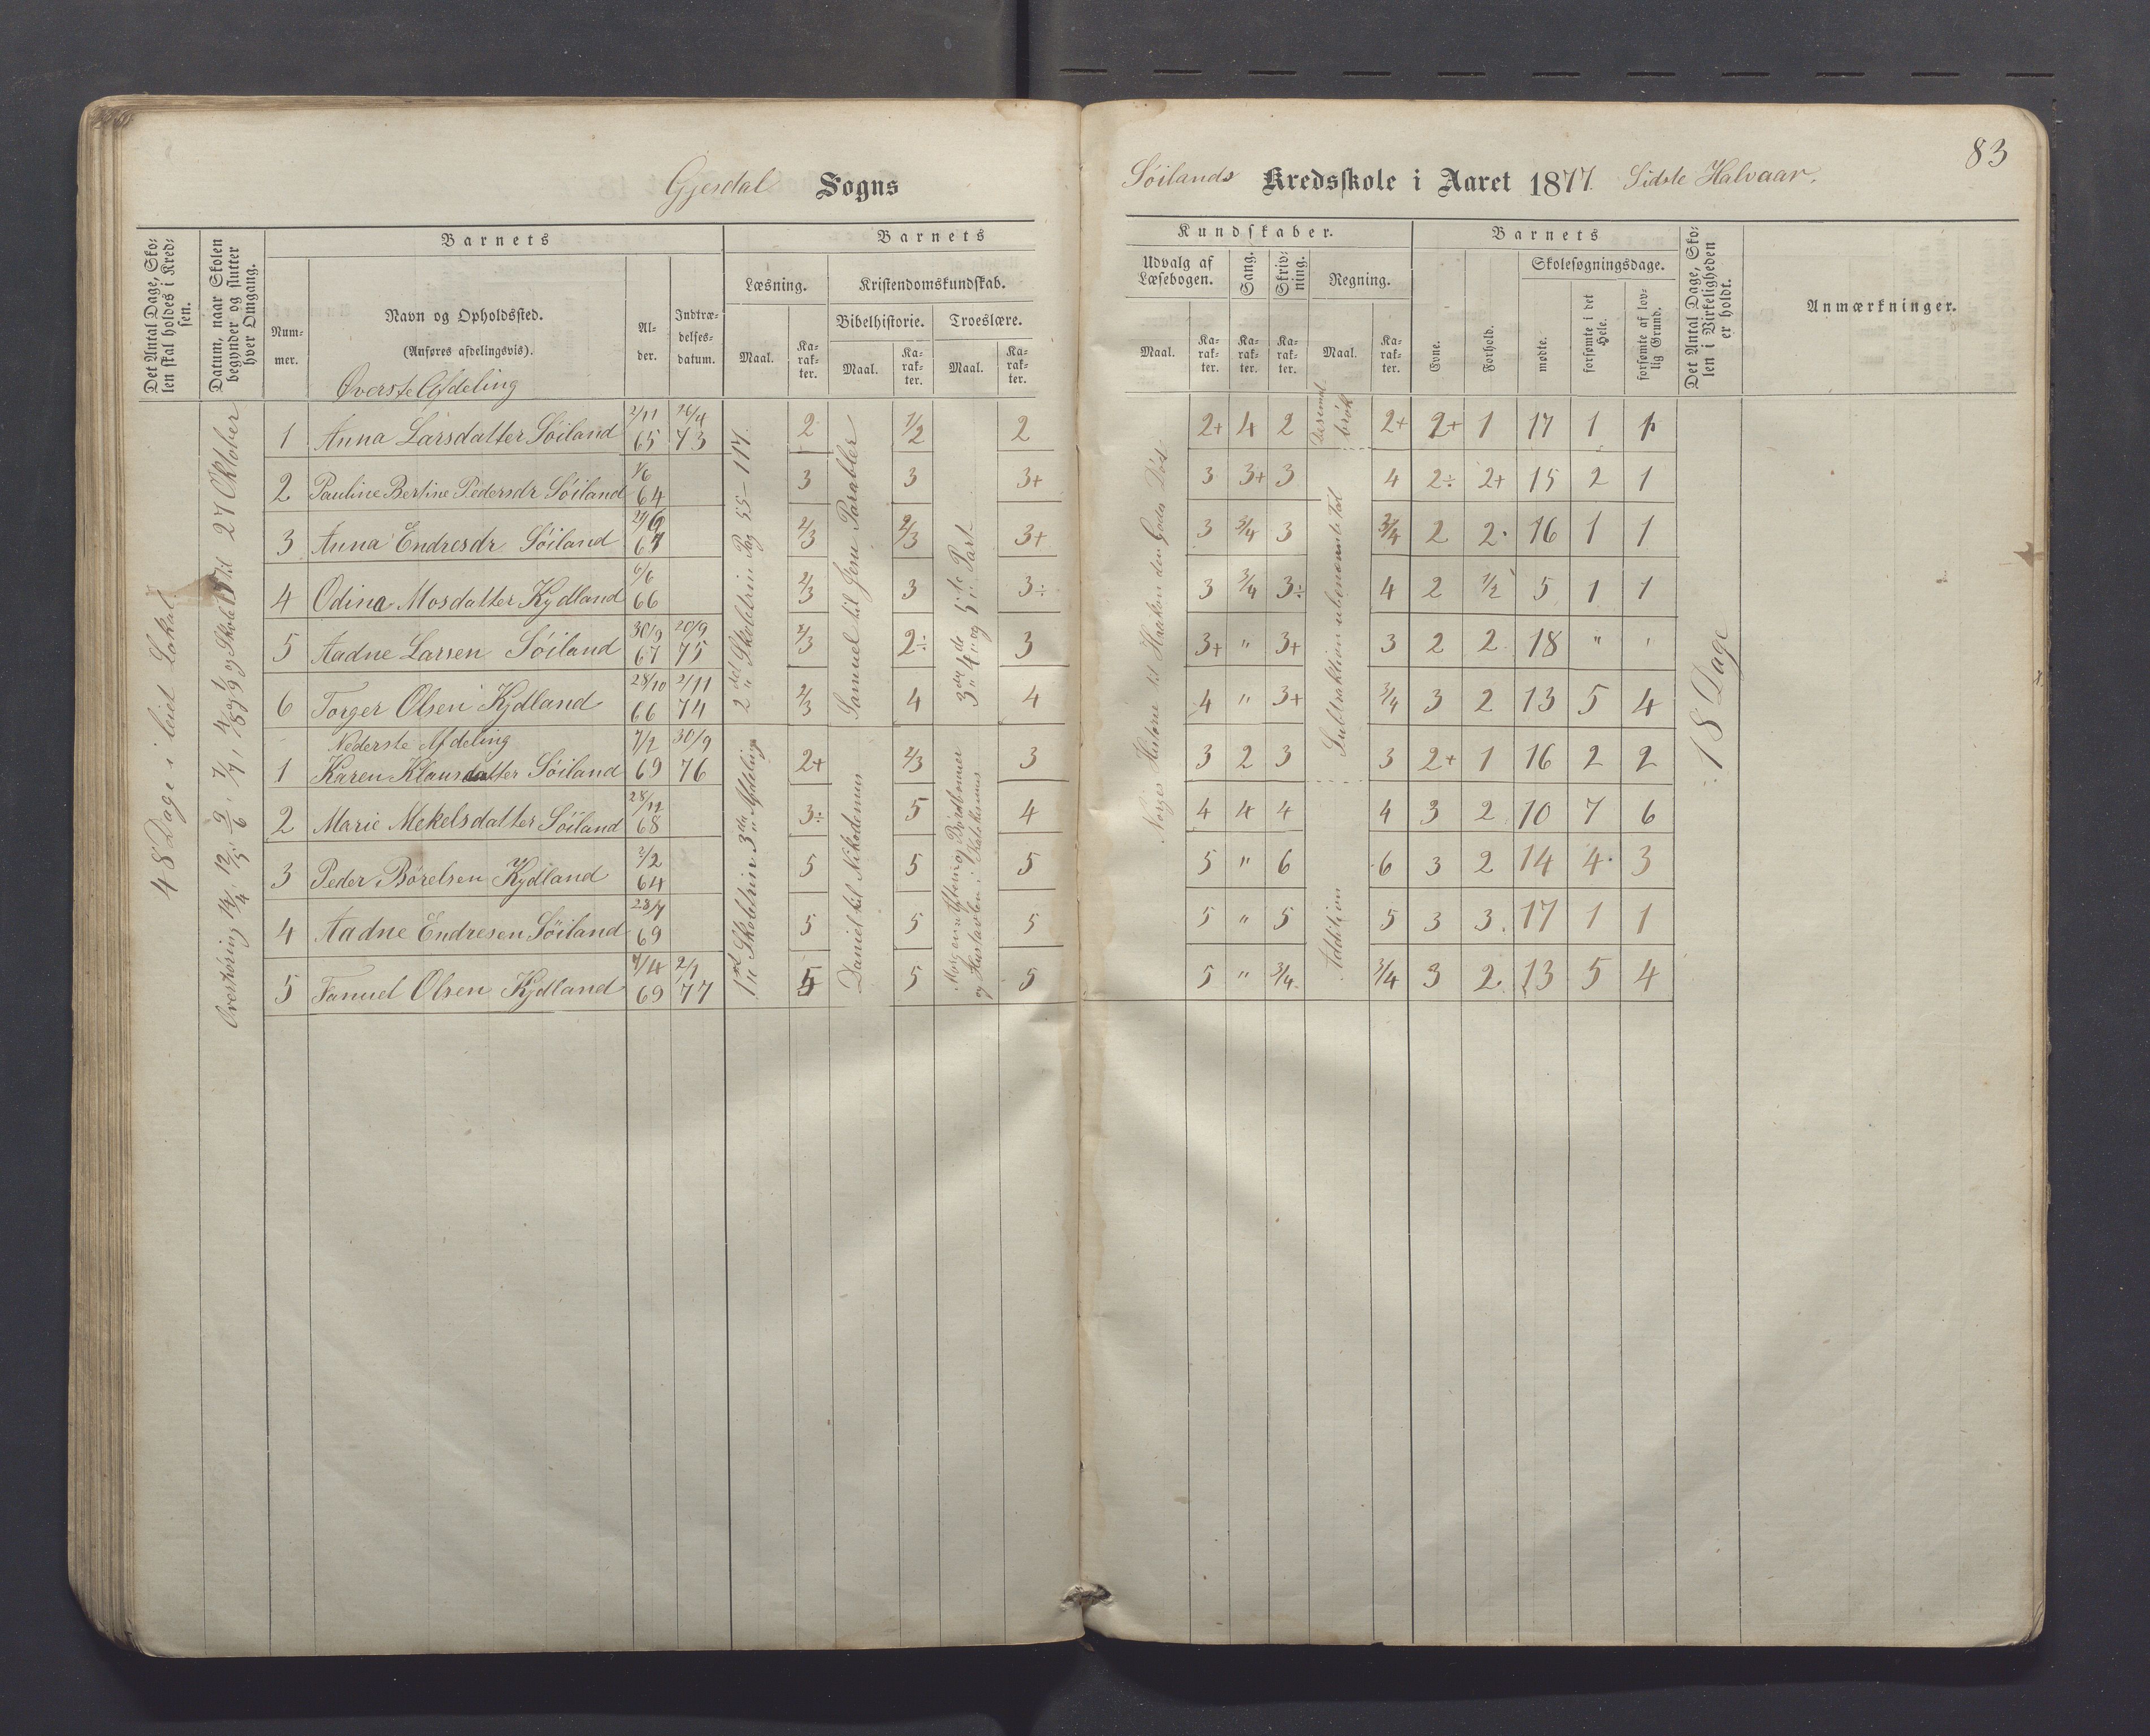 83
Gjesdal Sogns Söilands Kredsskole i Aaret 1877. Sidste Halvaar.
Det Antal Dage, Skolen skal holdes i Kredsen.
Datum, naar Skolen begynder og slutter hver Omgang.
Barnets
Nummer.
Navn og Opholdssted.
(Anføres afdelingsvis).
Alder.
Indtrædelsesdatum.
Barnets
Kundskaber.
Læsning.
Maal.
Karakter.
Kristendomskundskab.
Bibelhistorie.
Maal.
Karakter.
Troeslære.
Maal.
Karakter.
Udvalg af Læsebogen.
Maal.
Karakter.
Sang.
Karakter.
Skrivning.
Karakter.
Regning.
Maal.
Karakter.
Barnets
Evne.
Forhold.
Skolesøgningsdage.
mødte.
forsømte i det Hele.
forsømte af lovlig Grund.
Det Antal Dage, Skolen i Virkeligheden er holdt.
Anmærkninger.
48 Dage i leiet Lokal
27 Oktober
Øverste Afdeling
1 Anna Larsdatter Söiland 2/11 65 26/4 73 2 1/2 2 2+ 4 2 2+ 2+ 1 17 1 1
2 Pauline Bertine Pedersdr Söiland 1/6 64 3 3 3+ 3 3+ 3 4 2÷ 2+ 15 2 1
3 Anna Endresdr Söiland 67 2/3 2/3 3+ 3 3/4 3 3/4 2 2 16 1 1
4 Odina Mosdatter Kydland 6/6 66 2/3 3 3÷ 3 3/4 3÷ 4 2 1/2 5 1 1
5 Aadne Larsen Söiland 30/9 67 20/9 75 2/3 2÷ 3 3+ " 3+ 3 2 2 18 " "
6 Torger Olsen Kydland 28/10 66 2/11 74 2/3 4 4 4 " 3+ 3/4 3 2 13 5 4
Nederste Afdeling
1 Karen Klausdatter Söiland 7/2 69 30/9 76 2+ 2/3 3 3 2 3 3 2+ 1 16 2 2
2 Marie Mekelsdatter Söiland 68 3÷ 5 4 4 4 4 4 3 2 10 7 6
3 Peder Börelsen Kydland 2/2 64 5 5 5 5 " 6 6 3 2 14 4 3
4 Aadne Endresen Söiland 28/7 69 5 5 5 5 " 5 5 3 3 17 1 1
5 Fanuel Olsen Kydland 4/4 69 2/1 77 5 5 5 5 " 3/4 3/4 3 2 13 5 4
2det Skoletrin Pag 55-117
1ste Skoletrin 3die Afdeling
Samuel til Jesu Parabler
Daniel til Nikodemus
3die 4de og 5te Part
og Hustavlen i Katekismus
Norges Historie til Haakon den Godes Död
Subtraktion ubenævnte Tal
Addition
18 Dage